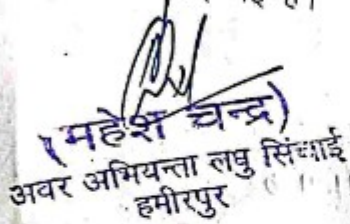 है।
(महेश चन्द्र)
अवर अभियन्ता लघु सिंचाई
हमीरपुर